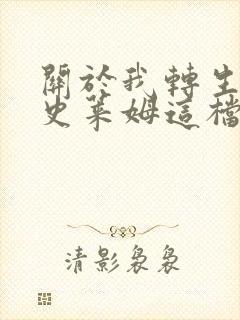 關於我轉生
史萊姆這檔
清影裊裊